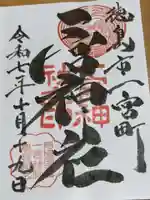 徳島市一宮町
一宮神社
令和七年十月十九日